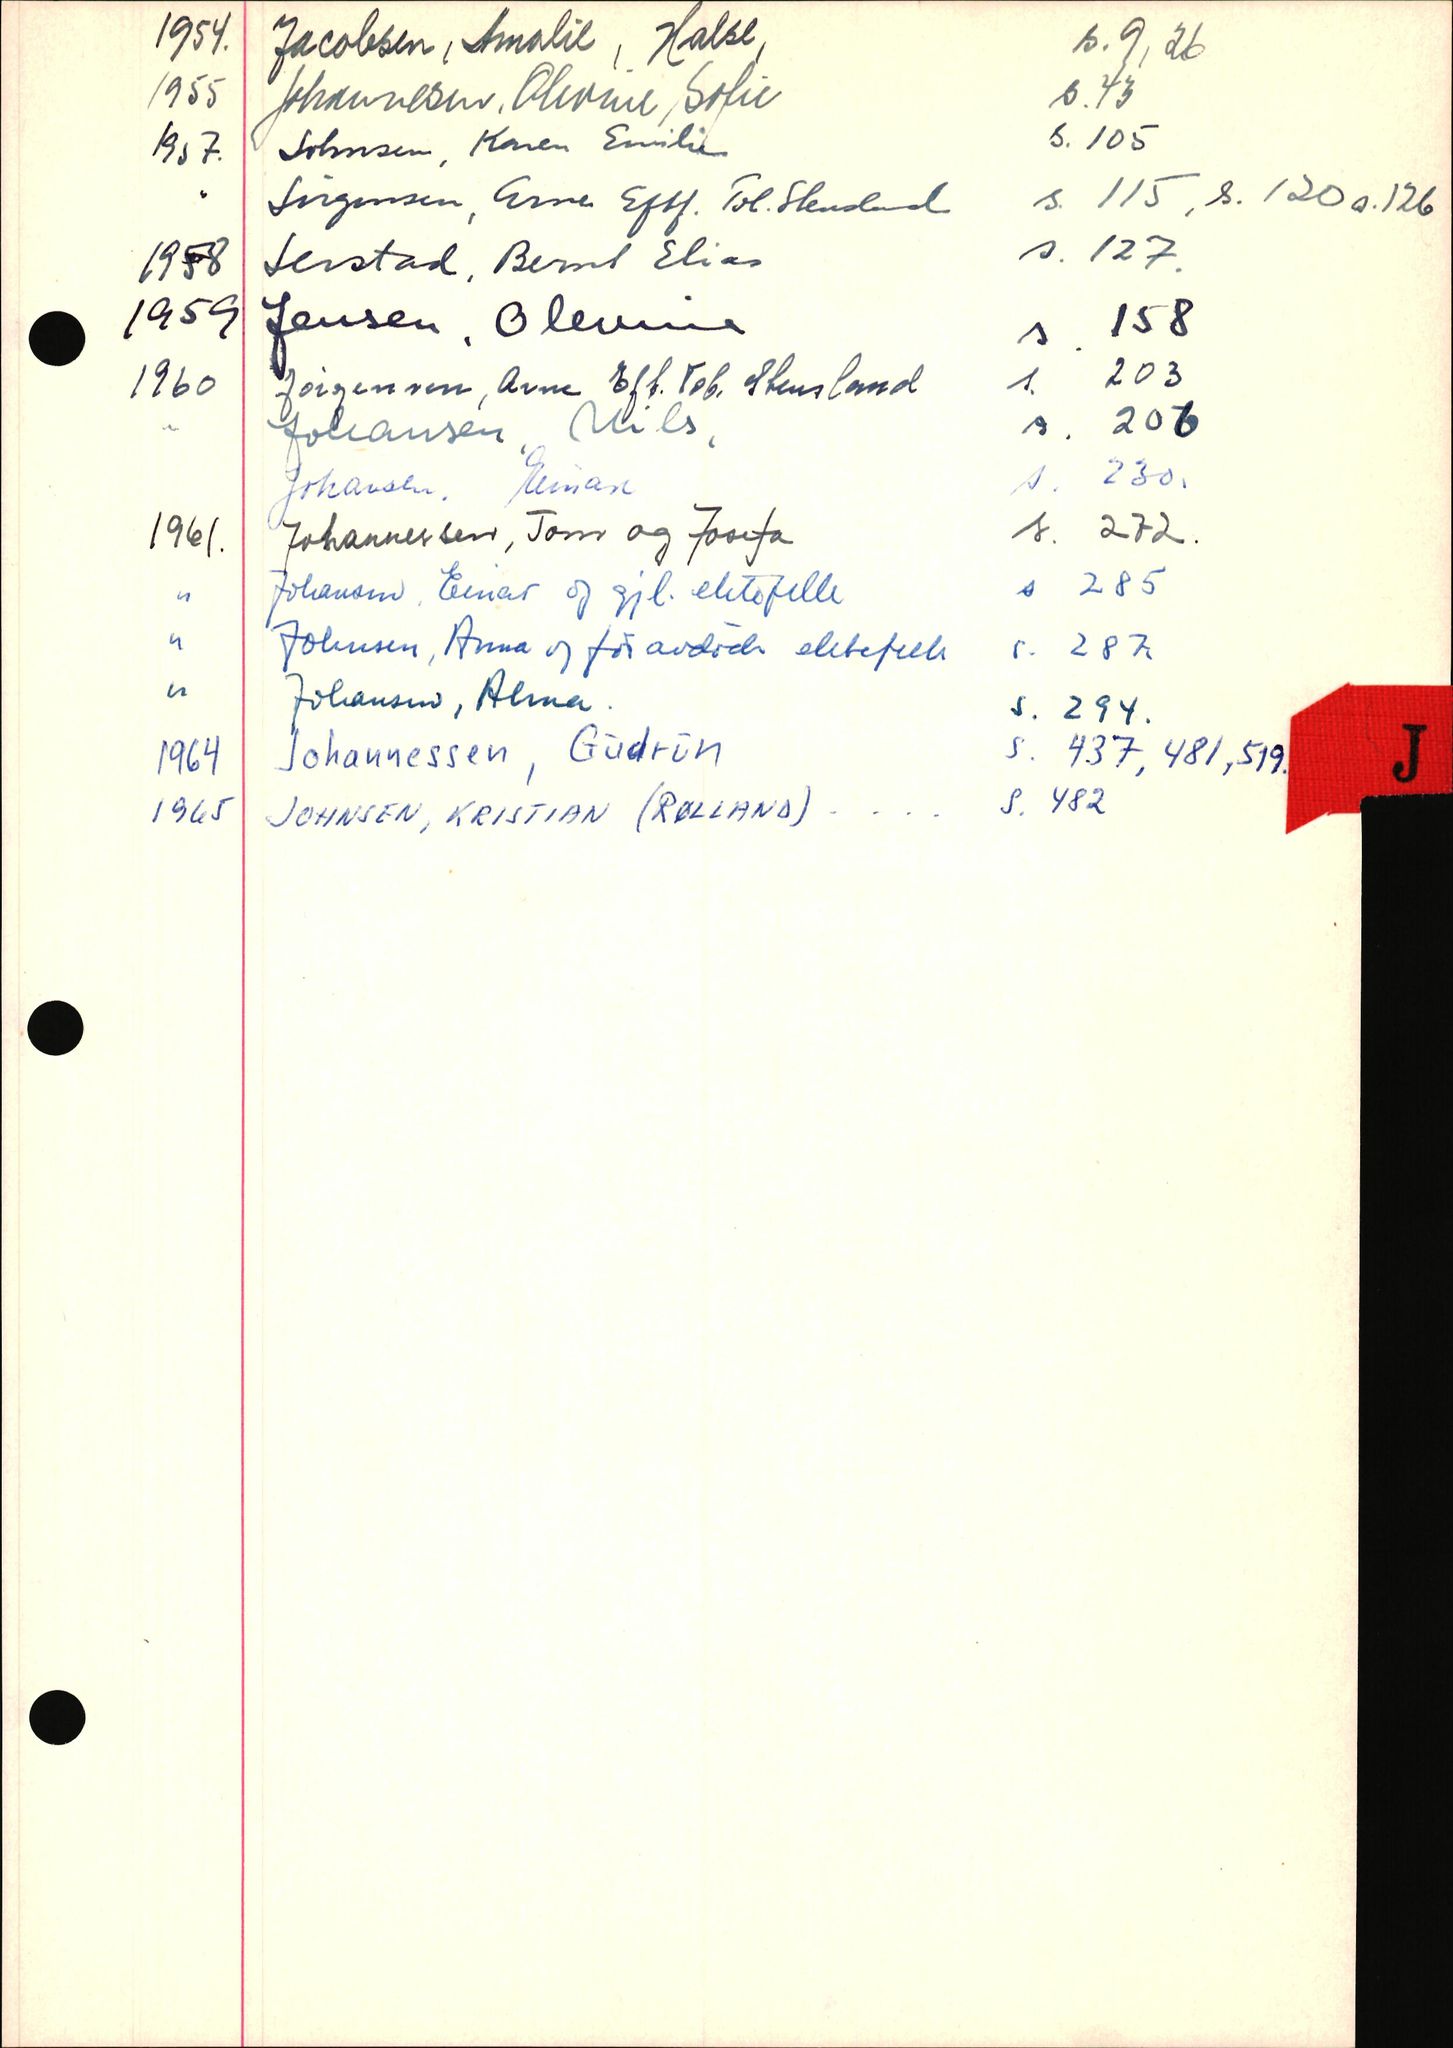 1954. Jacobsen, Amalie, Halse, s. 9, 26
1955 Johannesen, Olevine Sofie s. 43
1957. Johnsen, Karen Emilie s. 105
" Jörgensen, Arne Eftf. Tob. Stensland s. 115, s. 120 s. 126
1958 Jerstad, Bernt Elias s. 127.
1959 Jensen, Olevine s. 158
1960 Jörgensen, Arne Eft. Tob. Stensland s. 203
" Johansen, Nils, s. 206
Johansen, Einar s. 230.
1961. Johannessen, Tom og Josefa s. 272.
" Johansen, Einar og gjl. ektefelle s 285
" Johnsen, Anna og før avdøde ektefelle s. 287
" Johansen, Alma. s. 294.
1964 Johannessen, Gudrun s. 437, 481, 519.
J
1965 JOHNSEN, KRISTIAN (RØLLAND) . . . . S. 482